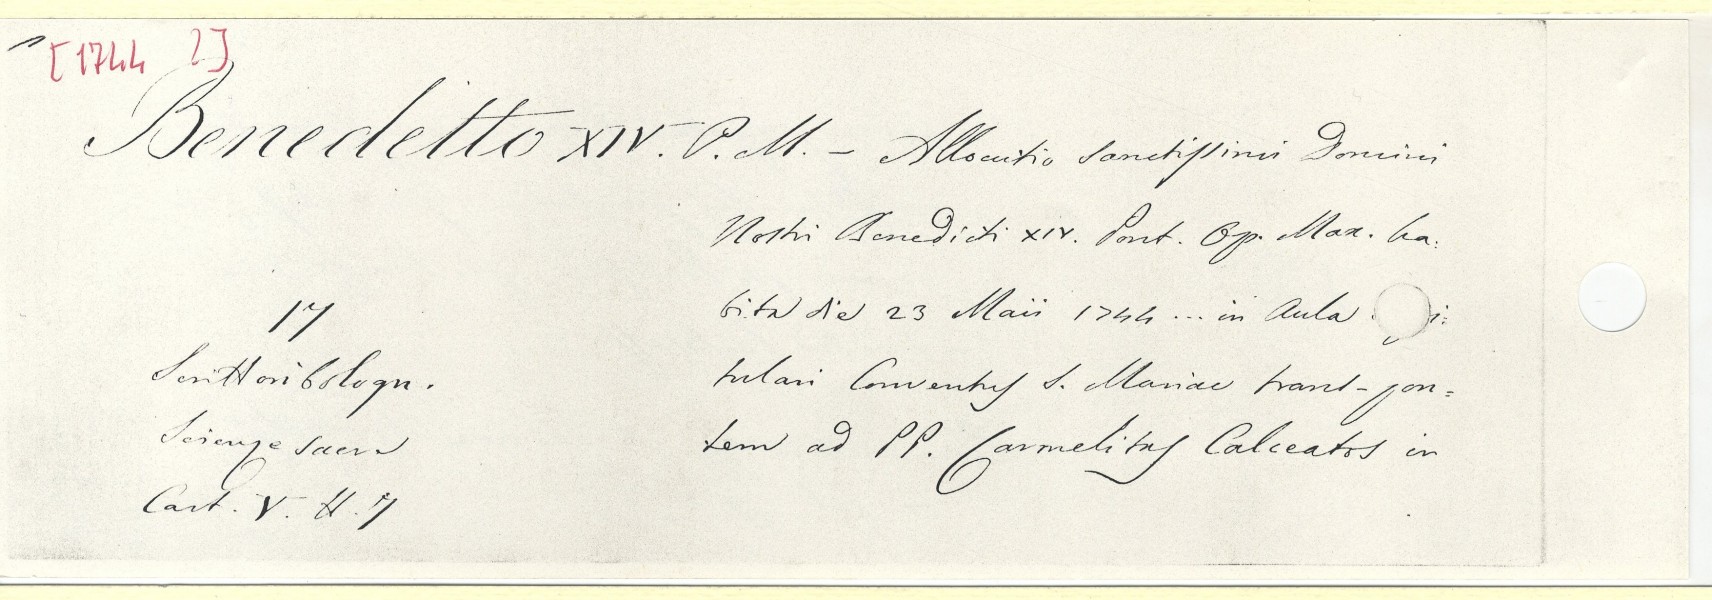 [1744 ?]
Benedetto XIV. P. M. - Allocutio Sanctissimi Domini
Nostri Benedicti XIV. Pont. Op. Max. ha:
bita die 23 Maii 1744 ... in Aula
tulari Conventus S. Mariae trans-pon=
tem ad PP. Carmelitas Calceatos in
17
Scrittori bologn.
Scienze sacre
Cart. V. H. 7